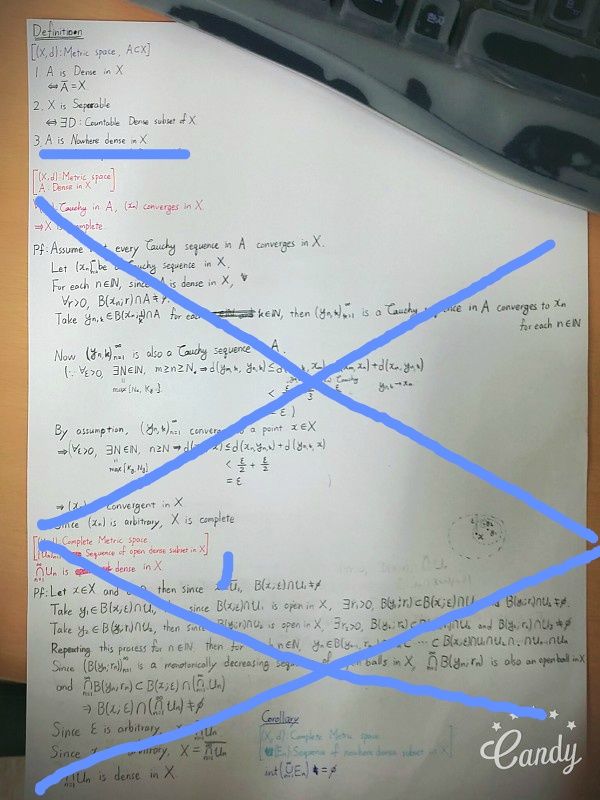 Definition
[(X,d): Metric space, A⊂X]
1. A is Dense in X
⇔ Ā = X
2. X is Separable
⇔ ∃D: Countable Dense subset of X
3. A is Nowhere dense in X
[(X,d): Metric space
A: Dense in X]
Cauchy in A, (xn) converges in X.
⇒ X is complete
Pf: Assume that every Cauchy sequence in A converges in X.
Let (xn) be a Cauchy sequence in X.
For each n∈ℕ, since A is dense in X,
∀r>0, B(xn;r)∩A≠φ.
Take yn,k∈B(xn; )∩A for each k∈ℕ, then (yn,k) is a Cauchy sequence in A converges to xn
for each n∈ℕ
Now (yn,k) is also a Cauchy sequence A.
(∵ ∀ε>0, ∃N∈ℕ, m≥n≥N, ⇒ d(ym,k, yn,k) ≤ d( xm) + d(xm, xn) + d(xn, yn,k)
max{Nε, Kε}
= ε)
By assumption, (yn,k) converges to a point x∈X
⇒ (∀ε>0, ∃N∈ℕ, n≥N ⇒ d( ) ≤ d(xn, yn,k) + d(yn,k, x)
< ε/2 + ε/2
= ε )
⇒ (xn) is convergent in X
Since (xn) is arbitrary, X is complete
[(X,d): Complete Metric space
Sequence of open dense subset in X]
⋂Un is dense in X
Pf: Let x∈X and ε>0, then since x Ū1, B(x;ε)∩U1≠φ.
Take y1∈B(x;ε)∩U1, since B(x;ε)∩U1 is open in X, ∃r1>0, B(y1;r1)⊂B(x;ε)∩U1 and B(y1;r1)∩U2≠φ.
Take y2∈B(y1;r1)∩U2, then since B(y1;r1)∩U2 is open in X, ∃r2>0, B(y2;r2)⊂B(y1;r1)∩U2 and B(y2;r2)∩U3≠φ
Repeating this process for n∈ℕ, then for each n∈ℕ, yn∈B( ⊂ B(x;ε)∩U1∩U2∩...∩Un
Since (B(yn;rn)) is a monotonically decreasing sequence of open balls in X, ⋂B(yn;rn) is also an open ball in X
and ⋂B(yn;rn) ⊂ B(x;ε)∩(⋂Un)
⇒ B(x;ε)∩(⋂Un)≠φ
Since ε is arbitrary,
Since x arbitrary, X =
⋂Un is dense in X.
Corollary
[(X,d): Complete Metric space
(En): Sequence of nowhere dense subset in X]
int(⋃En) = φ
Candy